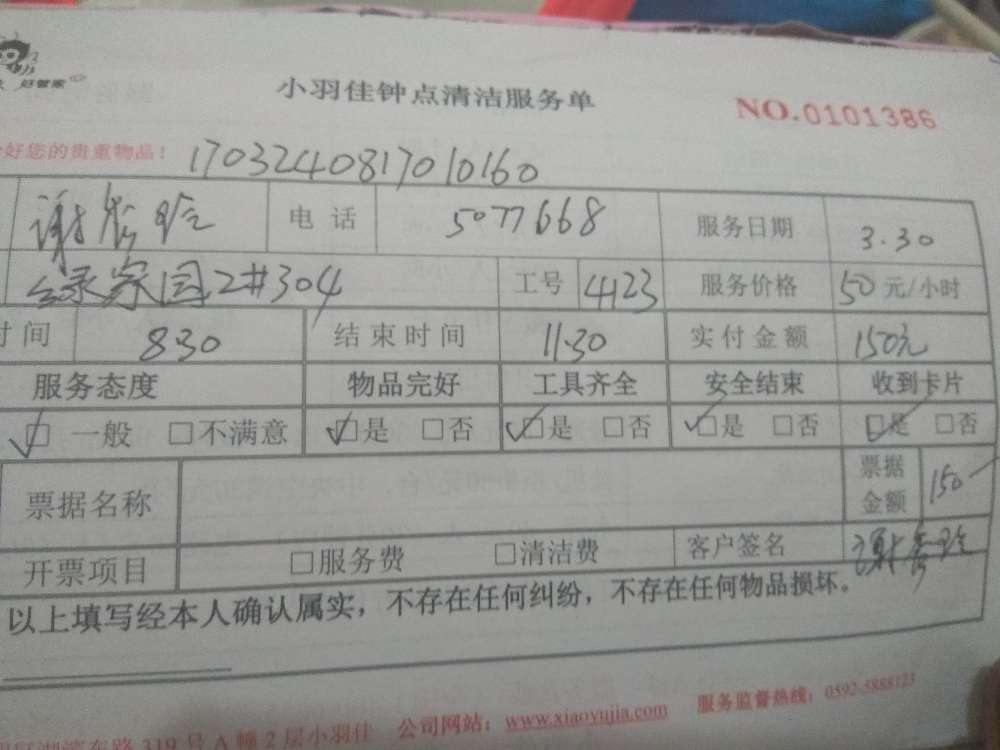 好管家
小羽佳钟点清洁服务单 NO.0101386
好您的贵重物品! 1703240817010160
谢 电话 5077668 服务日期 3.30
绿家园2#304 工号 4123 服务价格 50元/小时
时间 8:30 结束时间 11:30 实付金额 150元
服务态度 物品完好 工具齐全 安全结束 收到卡片
☑ 一般 □不满意 ☑是 □否 ☑是 □否 ☑是 □否 ☑是 □否
票据名称 票据金额 150
开票项目 □服务费 □清洁费 客户签名 谢
以上填写经本人确认属实，不存在任何纠纷，不存在任何物品损坏。
服务监督热线：0592-5888123
湖滨东路319号A幢2层小羽佳 公司网站：www.xiaoyujia.com